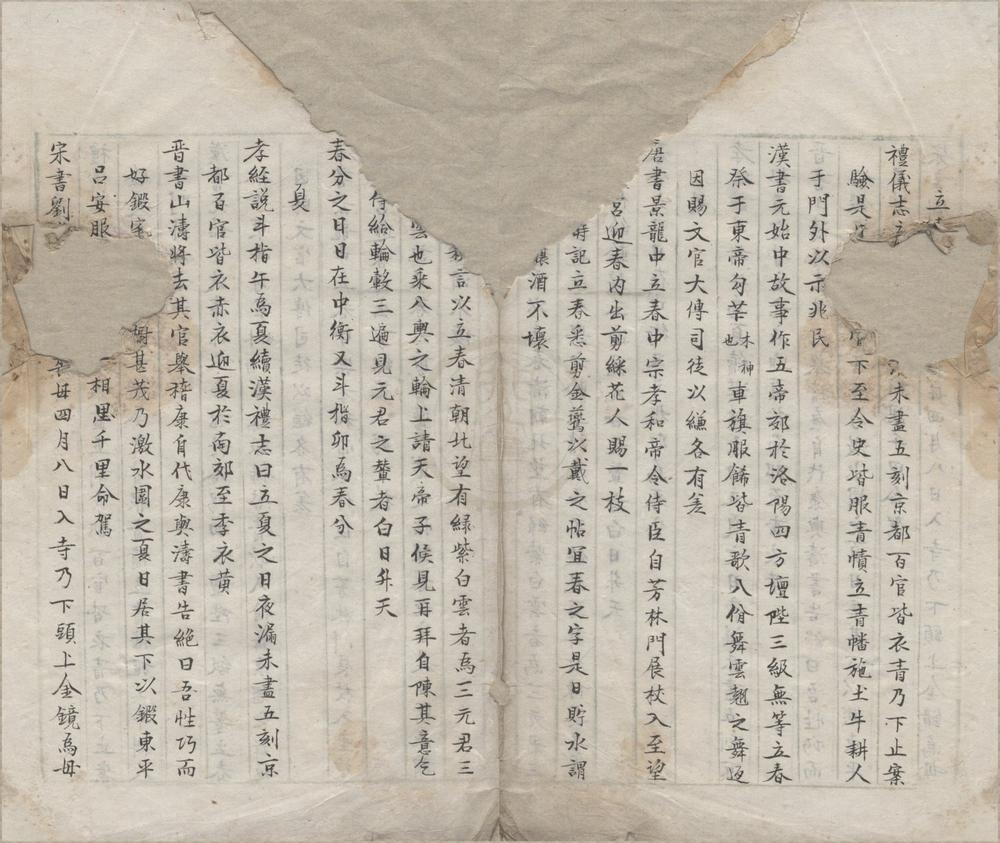 立
禮儀志立未盡五刻京都百官皆衣青乃下止案
驗是官下至令史皆服青幘立青幡施土牛耕人
于門外以示兆民
漢書元始中故事作五帝郊於洛陽四方壇陛三級無等立春
祭于東帝勾芒木神也車旗服餙皆青歌八佾舞雲翹之舞迎
因賜文官大傅司徒以縑各有差
唐書景龍中立春中宗孝和帝令侍臣自芳林門展杖入至望
迎春內出剪綵花人賜一枝
時記立春悉剪金薥以戴之帖冝春之字是日貯水謂
釀酒不壞
言以立春清朝北望有緑紫白雲者為三元君三
雲也乘八輿之輪上請天帝子候見再拜自陳其意乞
侍給輪轂三遍見元君之輦者白日升天
春分之日日在中衡又斗指卯為春分
夏
孝經説斗指午為夏續漢禮志曰立夏之日夜漏未盡五刻京
都百官皆衣赤衣迎夏於南郊至季衣黃
晉書山濤將去其官舉嵇康自代康輿濤書告絕曰吾性巧而
好鍛宅樹甚茂乃激水圜之夏日居其下以鍜東平
呂安服相思千里命駕
宋書劉母四月八日入寺乃下頭上金鏡為毋